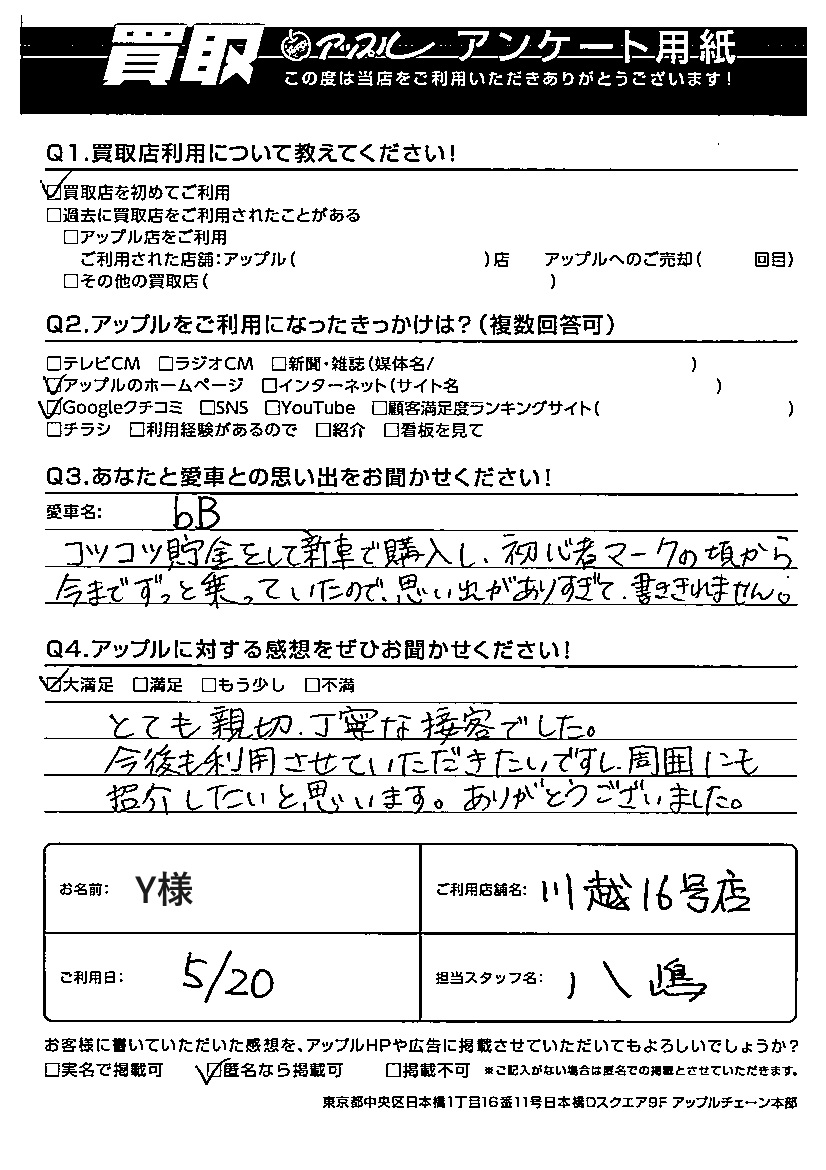 買取 アップル アンケート用紙
この度は当店をご利用いただきありがとうございます!
Q1.買取店利用について教えてください!
☑買取店を初めてご利用
□過去に買取店をご利用されたことがある
□アップル店をご利用
ご利用された店舗:アップル( )店 アップルへのご売却( 回目)
□その他の買取店( )
Q2.アップルをご利用になったきっかけは?(複数回答可)
□テレビCM □ラジオCM □新聞・雑誌(媒体名/ )
☑アップルのホームページ □インターネット(サイト名 )
☑Googleクチコミ □SNS □YouTube □顧客満足度ランキングサイト( )
□チラシ □利用経験があるので □紹介 □看板を見て
Q3.あなたと愛車との思い出をお聞かせください!
愛車名: bB
コツコツ貯金をして新車で購入し、初心者マークの頃から
今までずっと乗っていたので、思い出がありすぎて、書ききれません。
Q4.アップルに対する感想をぜひお聞かせください!
☑大満足 □満足 □もう少し □不満
とても親切、丁寧な接客でした。
今後も利用させていただきたいですし、周囲にも
紹介したいと思います。ありがとうございました。
お名前: Y様 ご利用店舗名: 川越16号店
ご利用日: 5/20 担当スタッフ名: 八嶋
お客様に書いていただいた感想を、アップルHPや広告に掲載させていただいてもよろしいでしょうか?
□実名で掲載可 ☑匿名なら掲載可 □掲載不可 ※ご記入がない場合は匿名での掲載とさせていただきます。
東京都中央区日本橋1丁目16番11号日本橋Dスクエア9F アップルチェーン本部